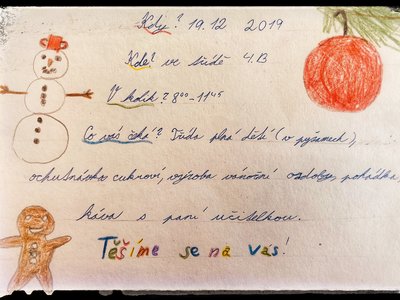 Kdy? 19.12 2019
Kde? ve třídě 4.B
V kolik? 8⁰⁰ - 11⁴⁵
Co vás čeká? Třída plná dětí (v pyžamech),
ochutnávka cukroví, výroba vánoční ozdoby, pohádka,
káva s paní učitelkou.
Těšíme se na vás!